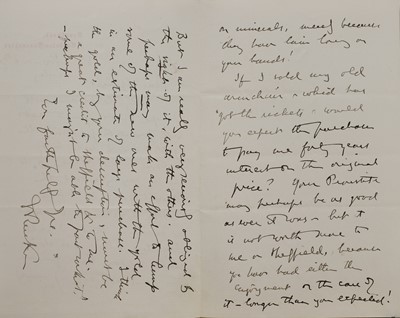 on minerals, merely because
they have lain long on
your hands!
If I sold my old
armchair - which has
got the rickets - would
you expect the purchaser
to pay me forty years
interest on the original
price? Your Proustite
may perhaps be as good
as ever it was - but it
is not worth more to
me or Sheffield, because
you have had either the
enjoyment or the care of
it - longer than you expected!
But I am really very seriously obliged by
the sight of it, with the others - and
perhaps may make an effort to lump
some of the new ones with the gold
in an estimate of large purchase. I think
the gold, by your description, must be
a great credit to Sheffield & to me
- perhaps I mightn't be able to part with it!
faithfully